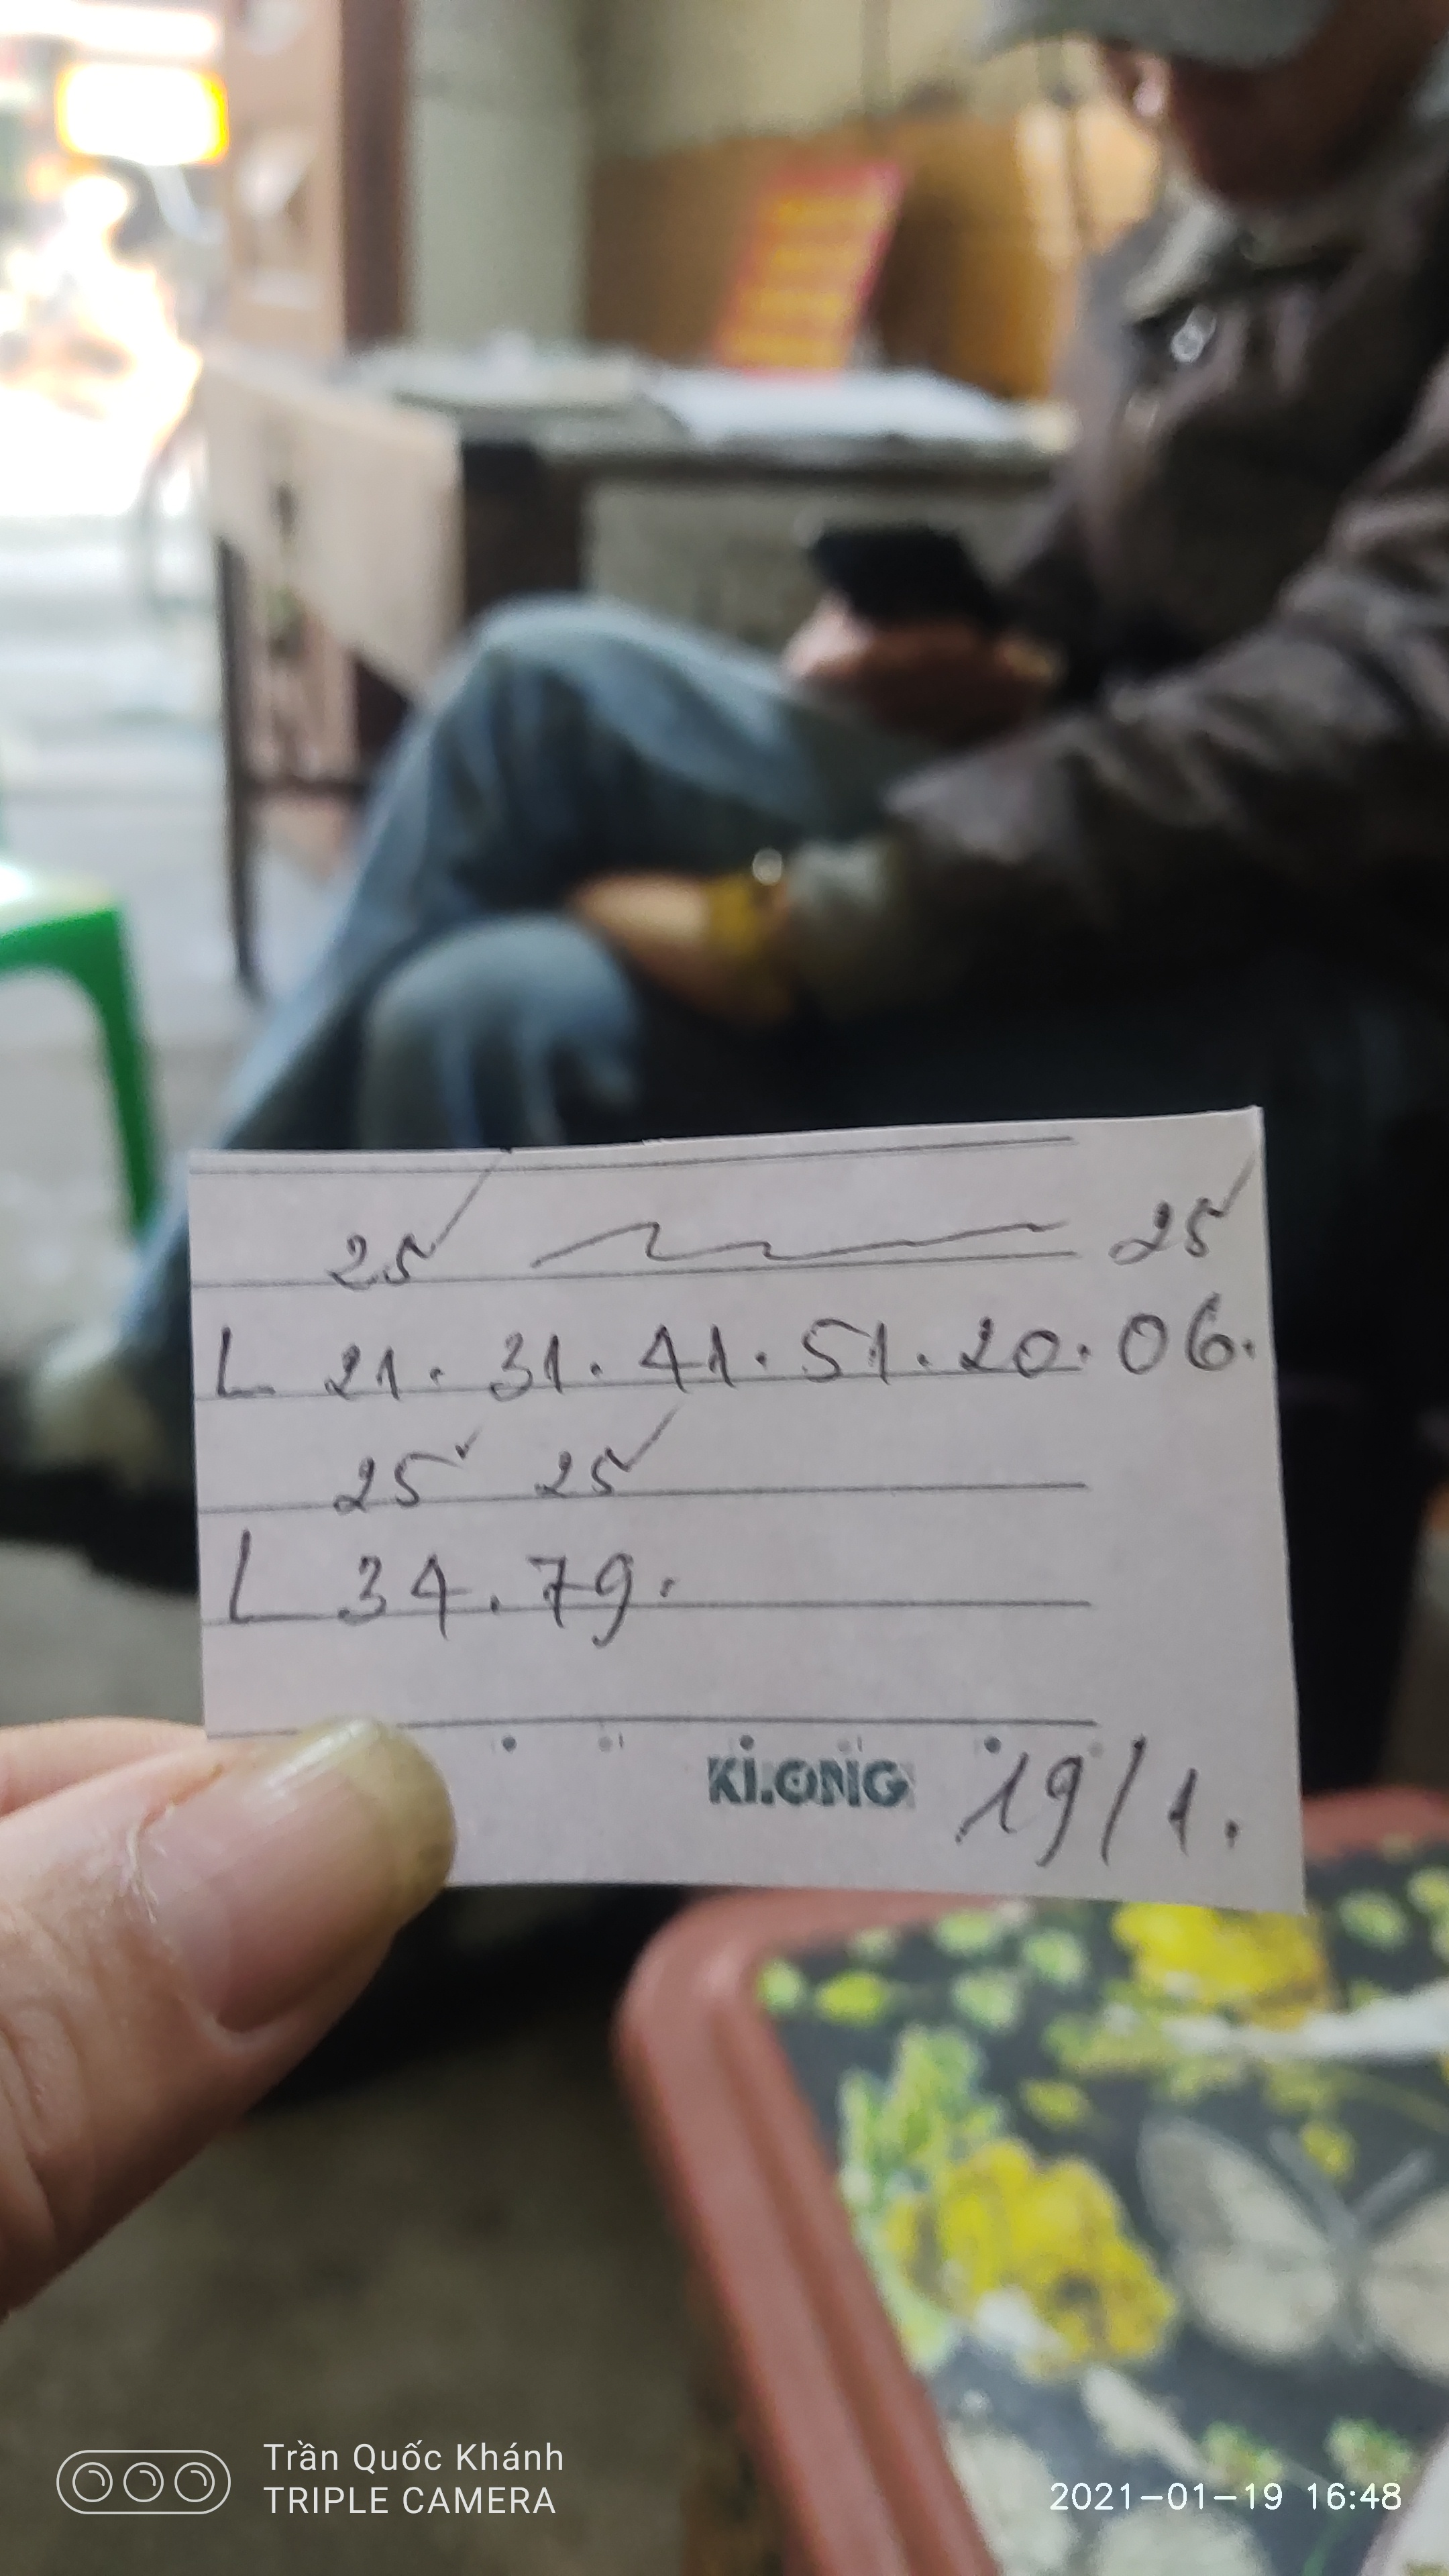 25 25
L 21. 31. 41. 51. 20. 06.
25 25
L 34. 79.
KLONG 19/1.
Trần Quốc Khánh
TRIPLE CAMERA
2021-01-19 16:48